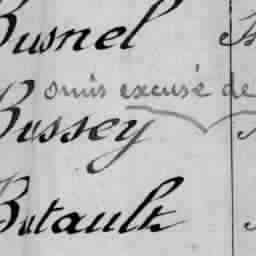 Busnel
omis excusé de
Bussey
Butault